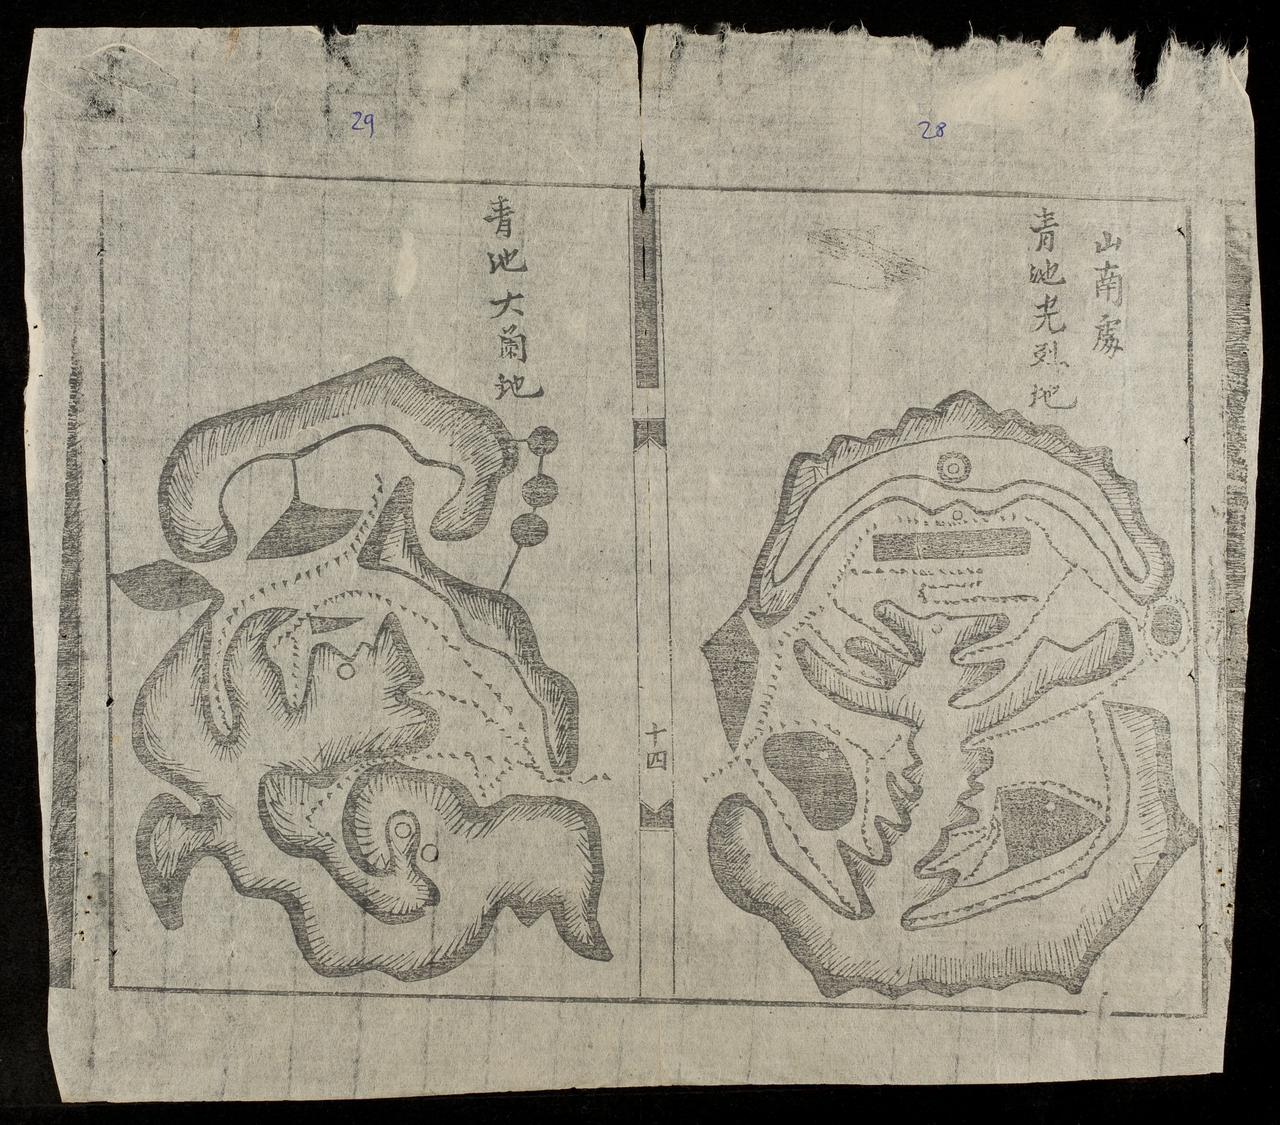 28
山南處
青池光烈地
十四
29
青池大蘭地